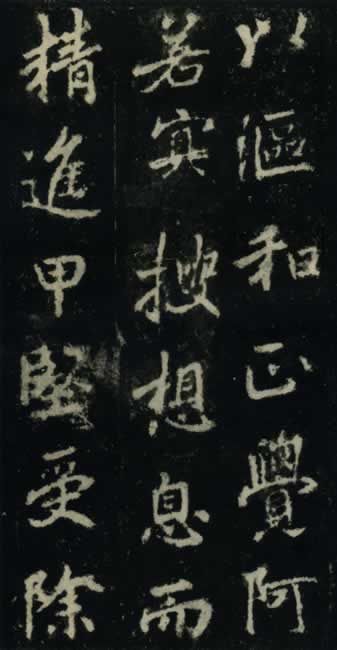 以漚和正覺阿
若冥搜想息而
精進甲堅受除